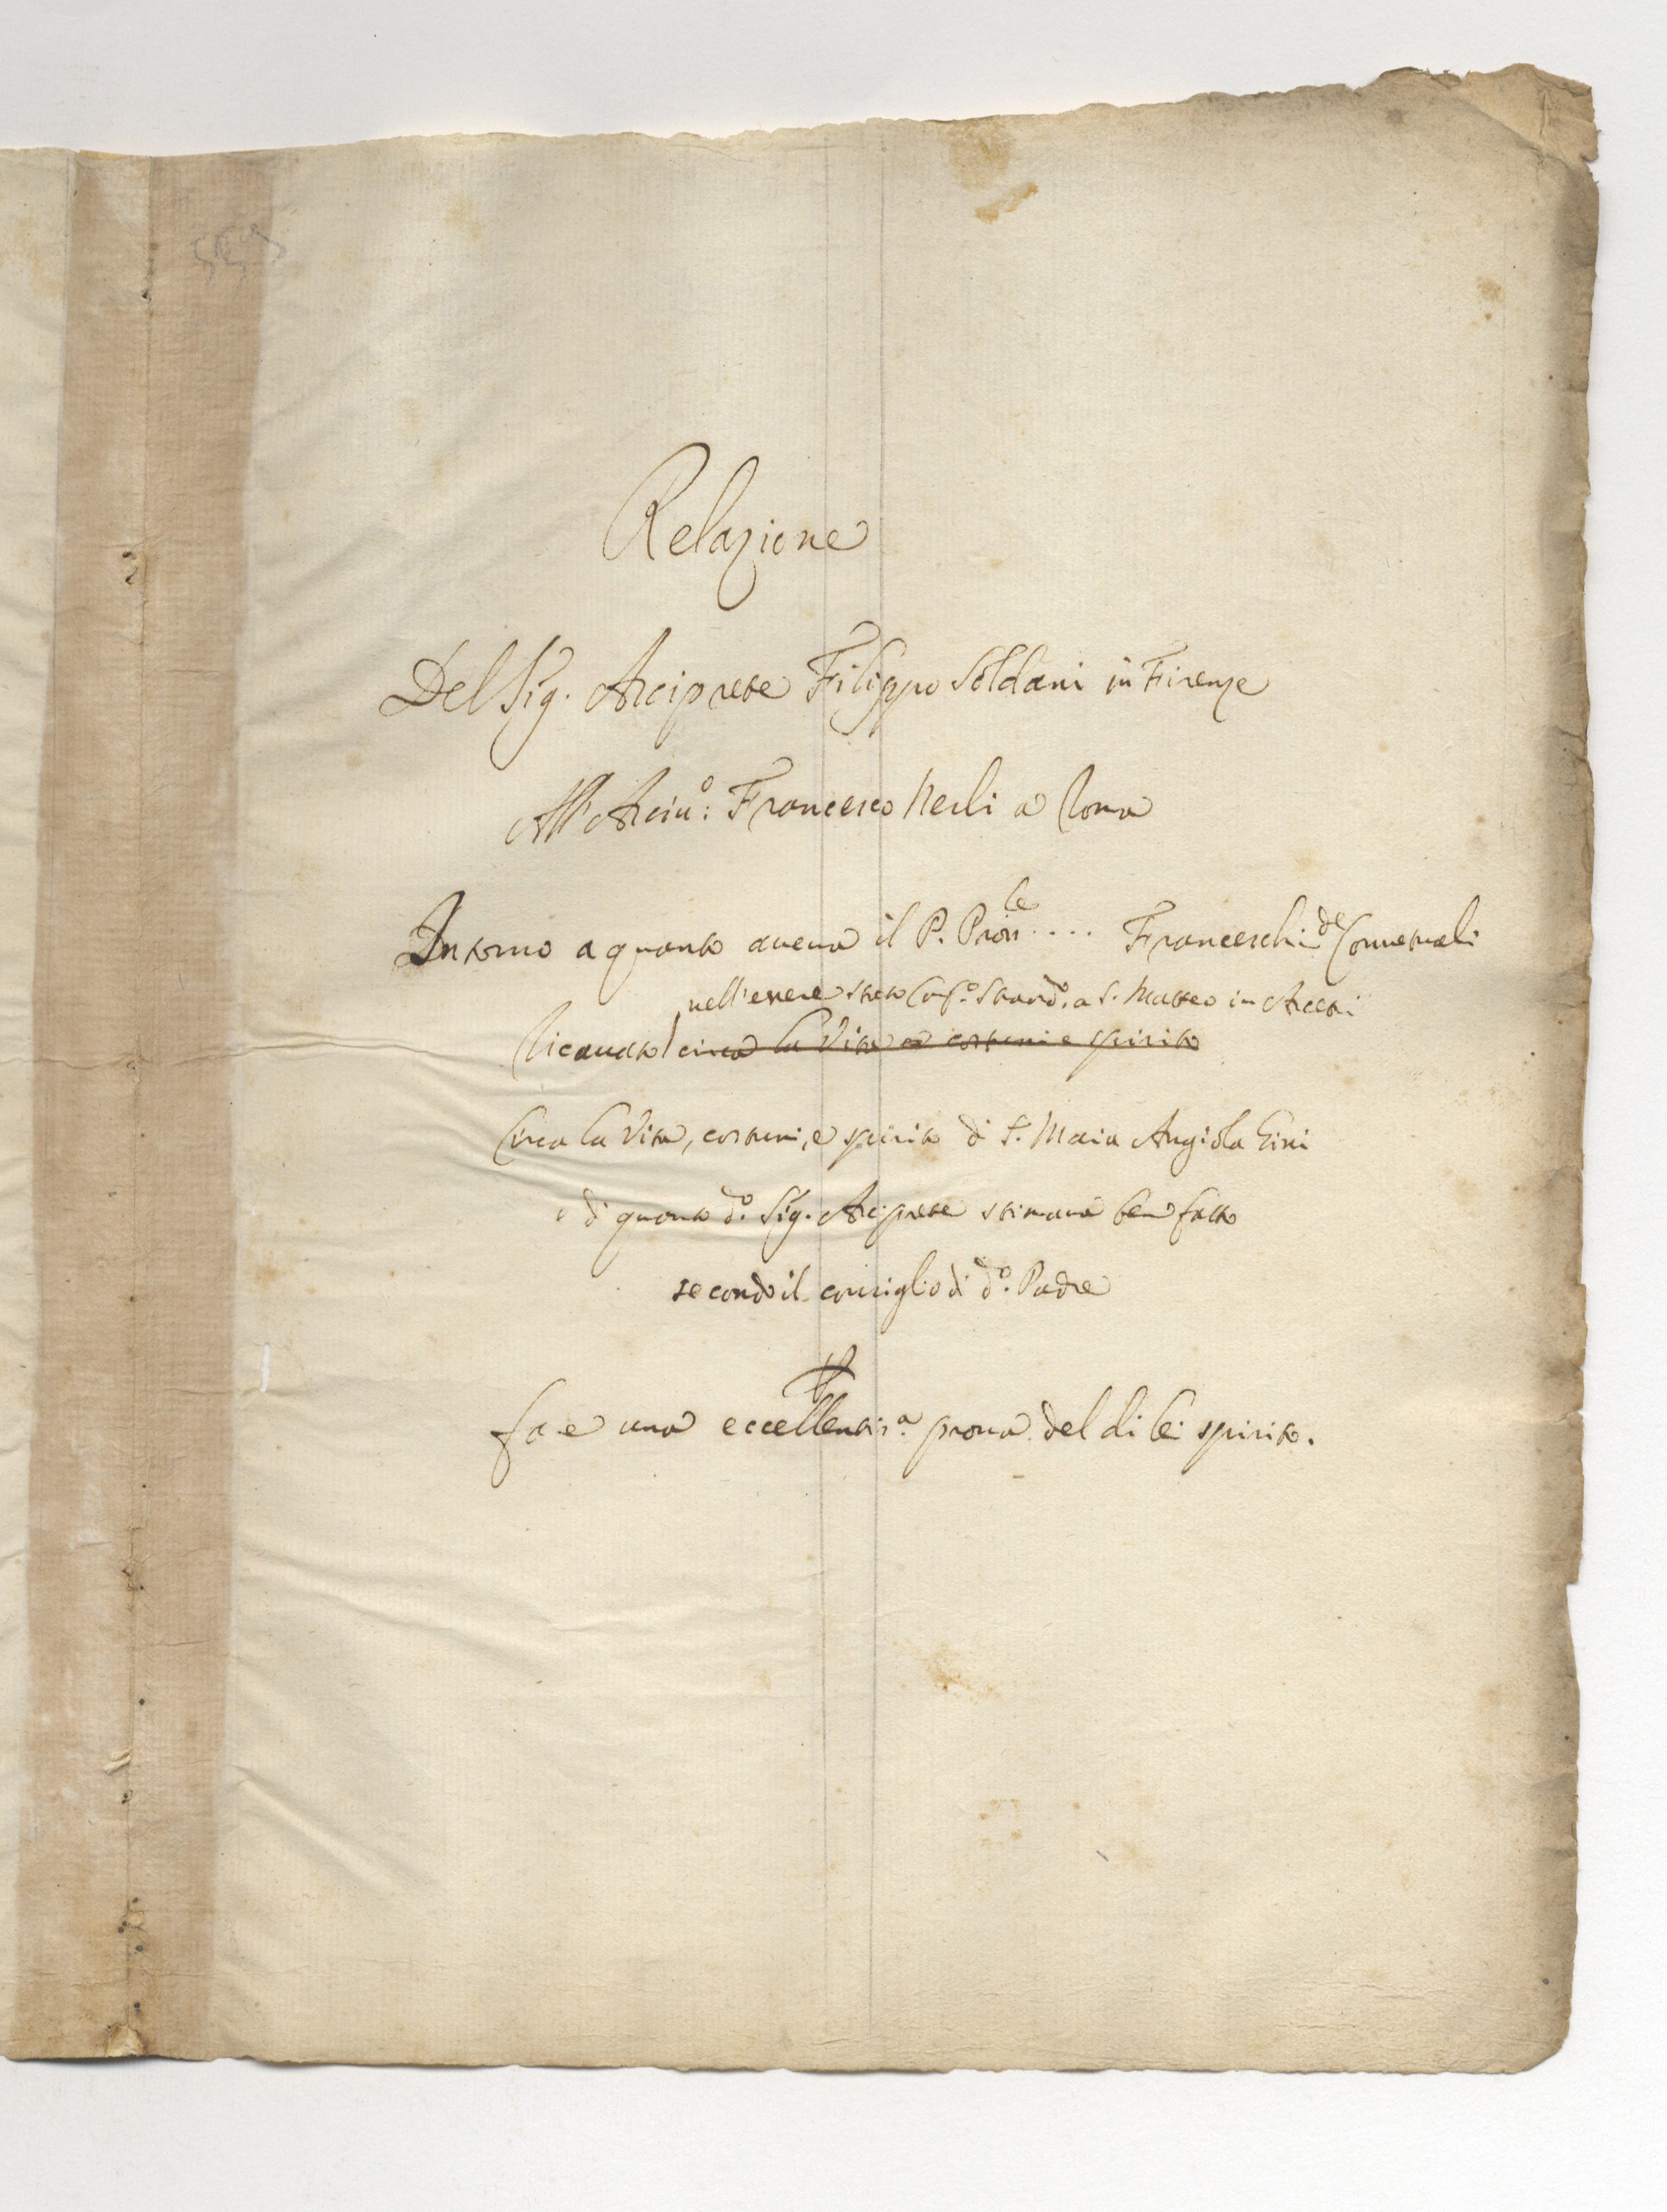 Relazione
Del Sig. Arciprete Filippo Soldani in Firenze
All'Arciu.º: Francesco Nerli a Roma
Intorno a quanto aueua il P. Prou.le .... Franceschi de Conuentuali
nell'essere stato Conf.º straord.º a S. Matteo in Arcetri
ricauato circa la Vita costumi e spirito
circa la Vita, costumi, e spirito di S. Maria Angiola Gini
e di quanto d.º Sig. Arciprete stimaua ben fatto
secondo il consiglio di d.º Padre
fare una eccellentis.ª proua del di lei spirito.